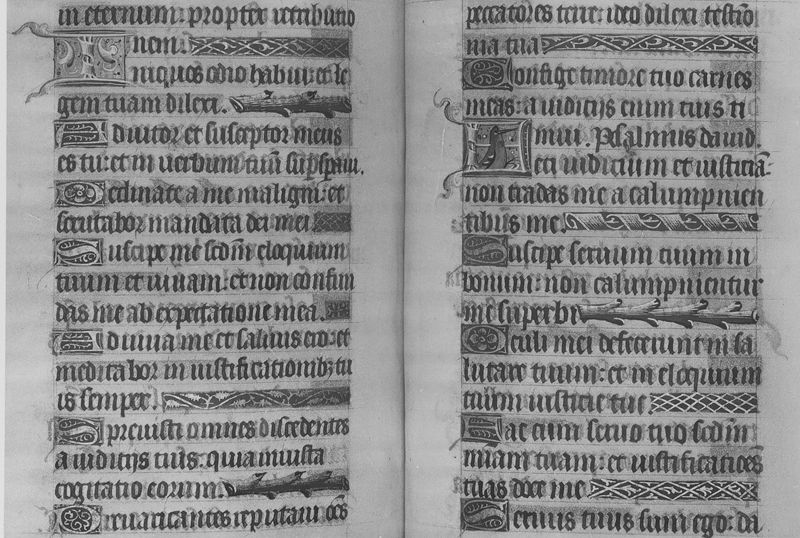 in eternum: propter retributio
nem.
Iniquos odio habui: et le
gem tuam dilexi.
Adiutor et susceptor meus
es tu: et in verbum tuũ sup̃sperãui.
Declinate a me maligni: et
scrutabor mandata dei mei
Suscipe me scd̃m eloquium
tuum et uiuam: et non confun
das me ab expectatione mea.
Adiuua me et saluus ero: et
meditabor in iustificationibꝫ tu
is semper.
Spreuisti omnes discedentes
a iudicijs tuis: quia iniusta
cogitatio eorum.
Preuaricantes reputaui oẽs
peccatores terre: ideo dilexi testiõ
nia tua
Confige timore tuo carnes
meas: a iudicijs enim tuis ti
mui. Psalmus dauid
Feci iudicium et iusticiã:
non tradas me a calumpnien
tibus me.
Suscipe seruum tuum in
bonum: non calumpnientur
me superbi
Oculi mei defecerunt in sa
lutare tuum: et in eloquium
iusticie tue
Fac cum seruo tuo scd̃m
miam tuam: et iustificatiões
tuas doce me
Seruus tuus sum ego: da